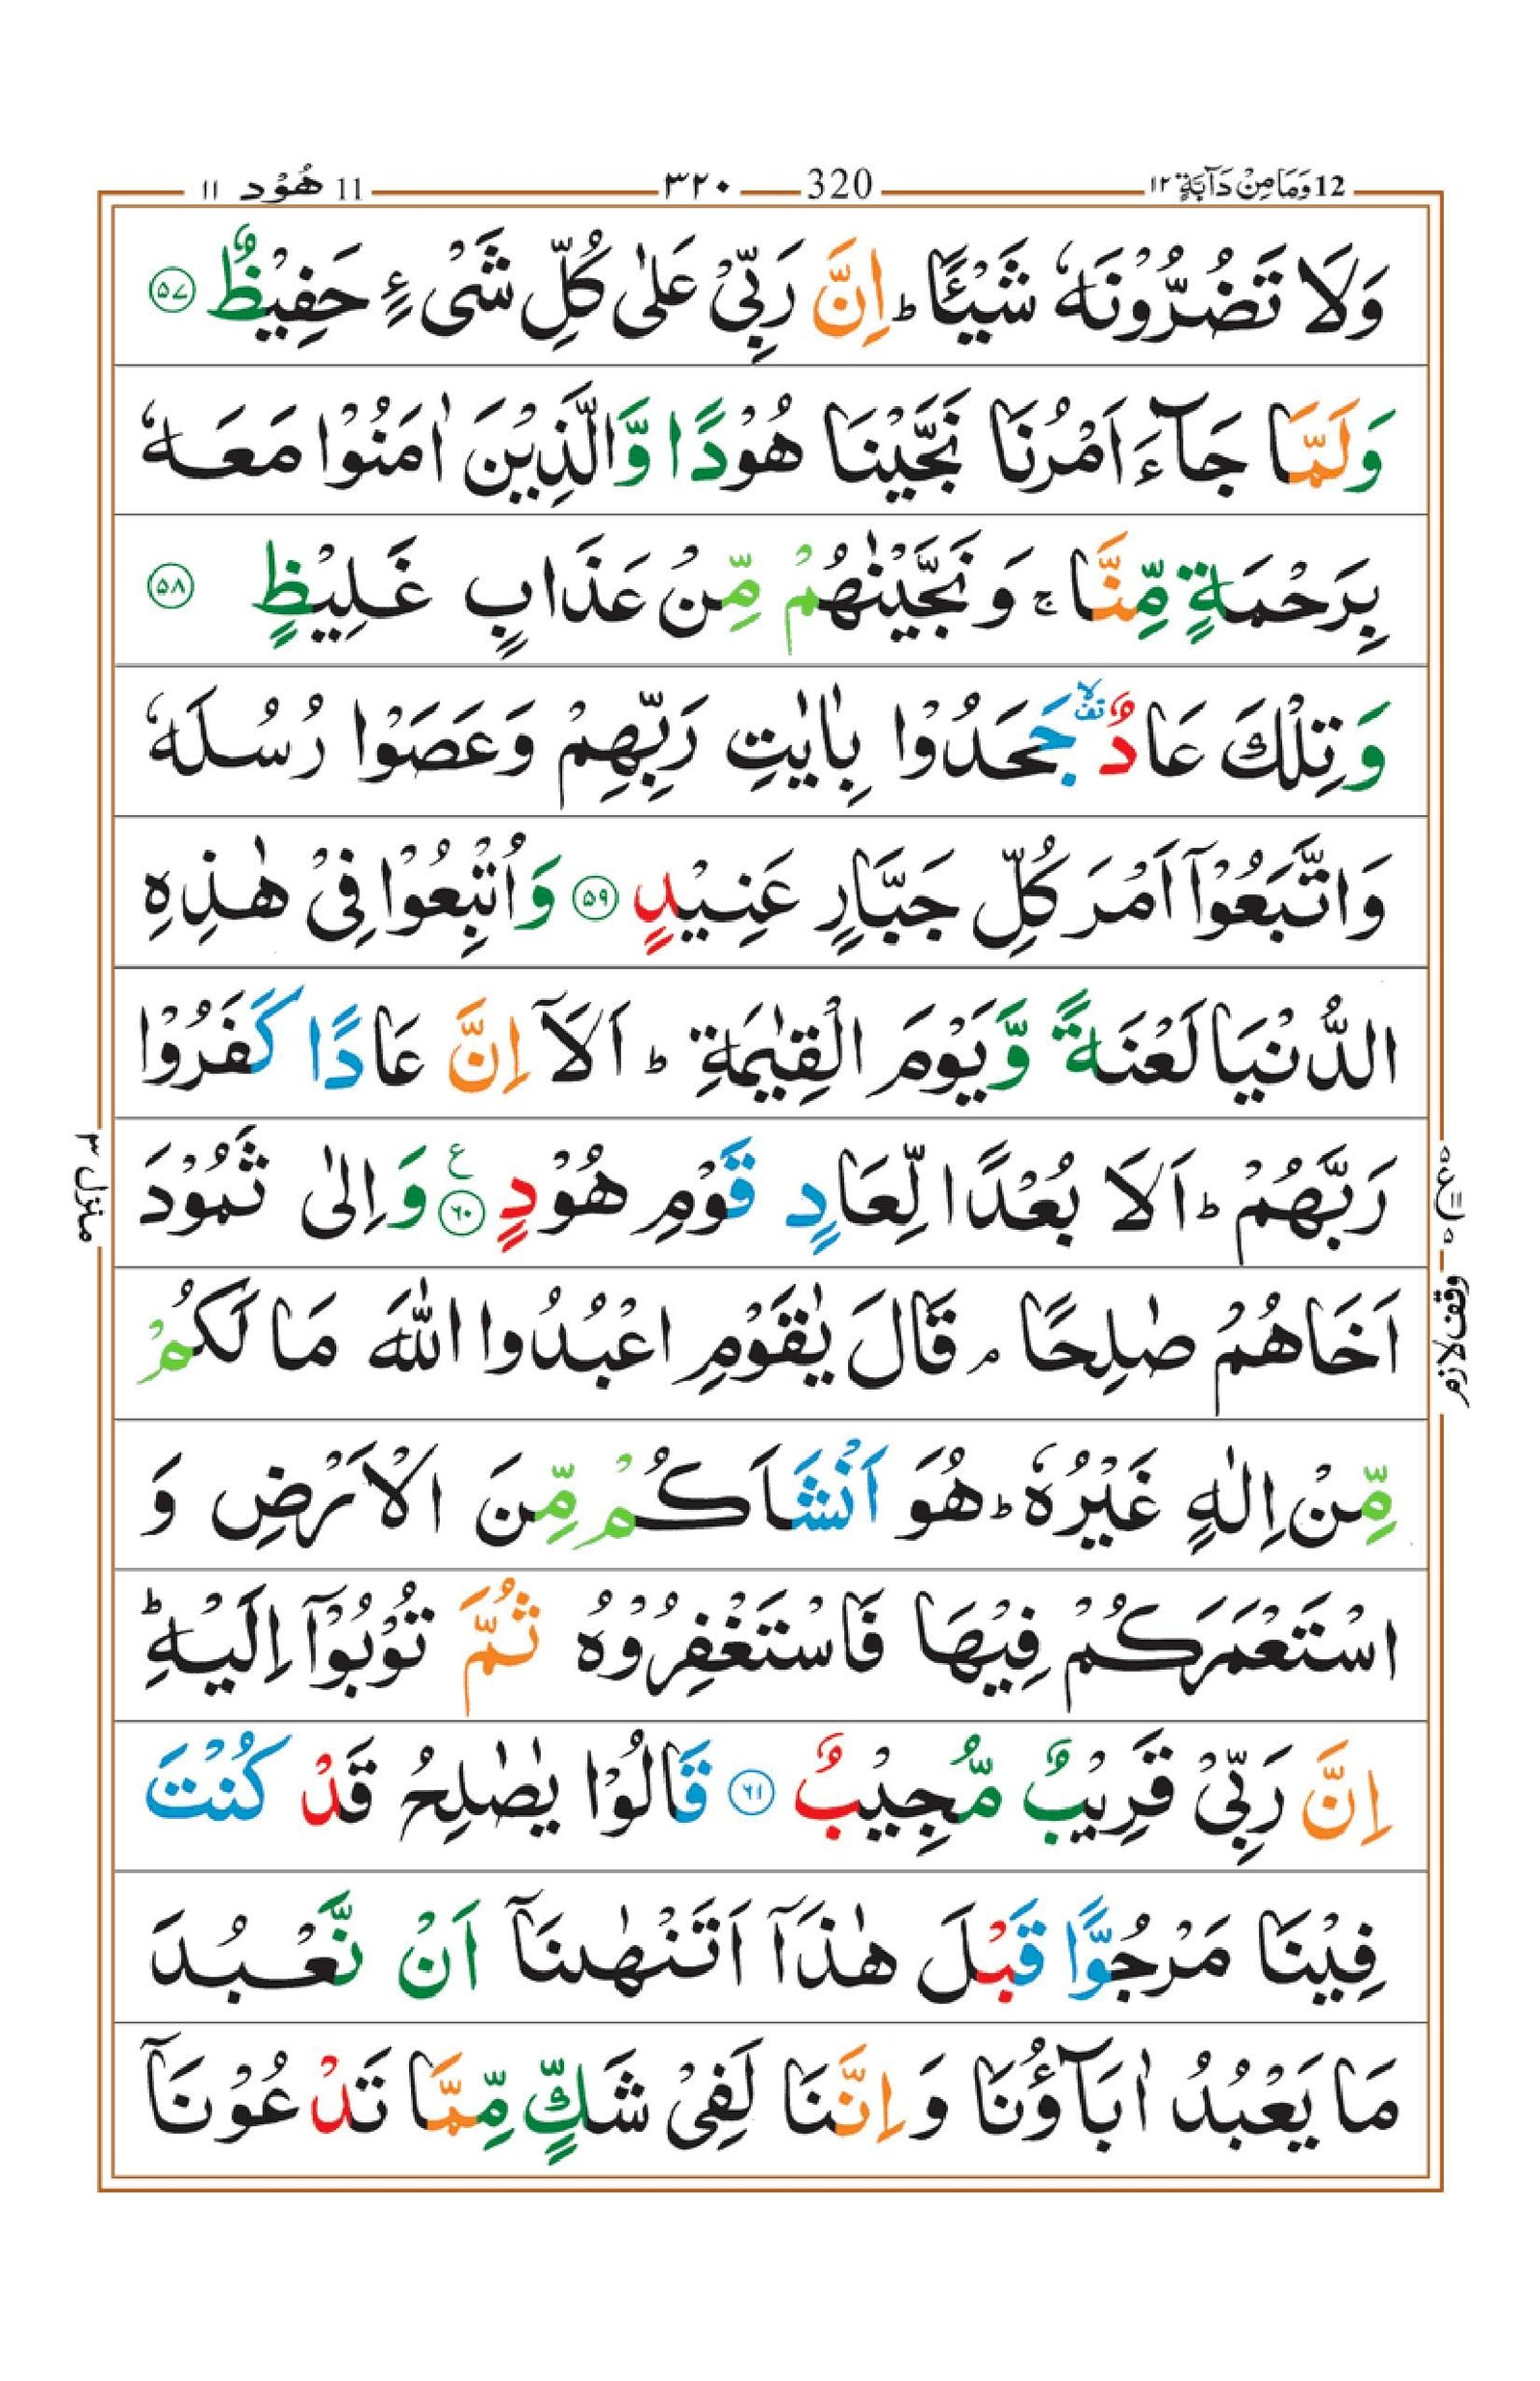 12 وَمَا مِنْ دَآبَّةٍ ١٢ 320 ٣٢٠ 11 هُوْد ١١
وَلَا تَضُرُّوْنَهٗ شَيْـًٔا ؕ اِنَّ رَبِّىْ عَلٰى كُلِّ شَىْءٍ حَفِيْظٌ ۝۵۷
وَلَمَّا جَآءَ اَمْرُنَا نَجَّيْنَا هُوْدًا وَّالَّذِيْنَ اٰمَنُوْا مَعَهٗ
بِرَحْمَةٍ مِّنَّا ۚ وَنَجَّيْنٰهُمْ مِّنْ عَذَابٍ غَلِيْظٍ ۝۵۸
وَتِلْكَ عَادٌ ۙ۟ جَحَدُوْا بِاٰيٰتِ رَبِّهِمْ وَعَصَوْا رُسُلَهٗ
وَاتَّبَعُوْۤا اَمْرَ كُلِّ جَبَّارٍ عَنِيْدٍ ۝۵۹ وَاُتْبِعُوْا فِىْ هٰذِهِ
الدُّنْيَا لَعْنَةً وَّيَوْمَ الْقِيٰمَةِ ؕ اَلَاۤ اِنَّ عَادًا كَفَرُوْا
رَبَّهُمْ ؕ اَلَا بُعْدًا لِّعَادٍ قَوْمِ هُوْدٍ ۝۶۰ ع وَاِلٰى ثَمُوْدَ
اَخَاهُمْ صٰلِحًا ۘ قَالَ يٰقَوْمِ اعْبُدُوا اللّٰهَ مَا لَكُمْ
مِّنْ اِلٰهٍ غَيْرُهٗ ؕ هُوَ اَنْشَاَكُمْ مِّنَ الْاَرْضِ وَ
اسْتَعْمَرَكُمْ فِيْهَا فَاسْتَغْفِرُوْهُ ثُمَّ تُوْبُوْۤا اِلَيْهِ ؕ
اِنَّ رَبِّىْ قَرِيْبٌ مُّجِيْبٌ ۝۶۱ قَالُوْا يٰصٰلِحُ قَدْ كُنْتَ
فِيْنَا مَرْجُوًّا قَبْلَ هٰذَاۤ اَتَنْهٰىنَاۤ اَنْ نَّعْبُدَ
مَا يَعْبُدُ اٰبَآؤُنَا وَاِنَّنَا لَفِىْ شَكٍّ مِّمَّا تَدْعُوْنَاۤ
وقف لازم
منزل ۳